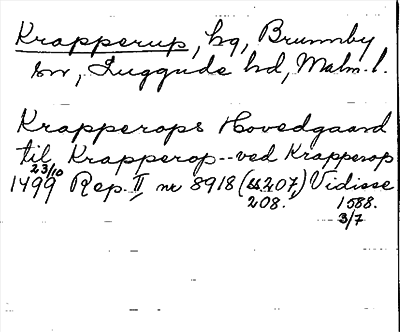 Krapperup, hg, Brunnby
sn, Luggude hd, Malm. l.
Krapperops Hovedgaard
til Krapperop -- ved Krapperop
23/10
1499 Rep. II nr 8918 (ss. 207, Vidisse
208. 1588.
3/7